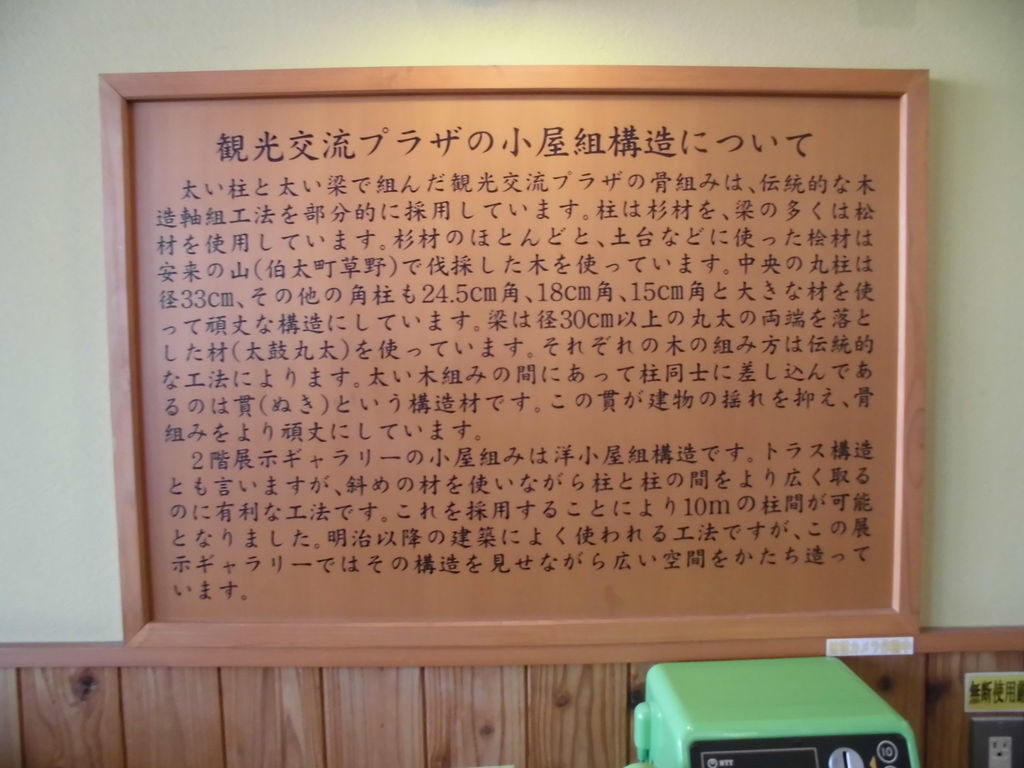 観光交流プラザの小屋組構造について
太い柱と太い梁で組んだ観光交流プラザの骨組みは、伝統的な木
造軸組工法を部分的に採用しています。柱は杉材を、梁の多くは松
材を使用しています。杉材のほとんどと、土台などに使った桧材は
安来の山(伯太町草野)で伐採した木を使っています。中央の丸柱は
径33cm、その他の角柱も24.5cm角、18cm角、15cm角と大きな材を使
って頑丈な構造にしています。梁は径30cm以上の丸太の両端を落と
した材(太鼓丸太)を使っています。それぞれの木の組み方は伝統的
な工法によります。太い木組みの間にあって柱同士に差し込んであ
るのは貫(ぬき)という構造材です。この貫が建物の揺れを抑え、骨
組みをより頑丈にしています。
2階展示ギャラリーの小屋組みは洋小屋組構造です。トラス構造
とも言いますが、斜めの材を使いながら柱と柱の間をより広く取る
のに有利な工法です。これを採用することにより10mの柱間が可能
となりました。明治以降の建築によく使われる工法ですが、この展
示ギャラリーではその構造を見せながら広い空間をかたち造って
います。
無断使用
NTT
10